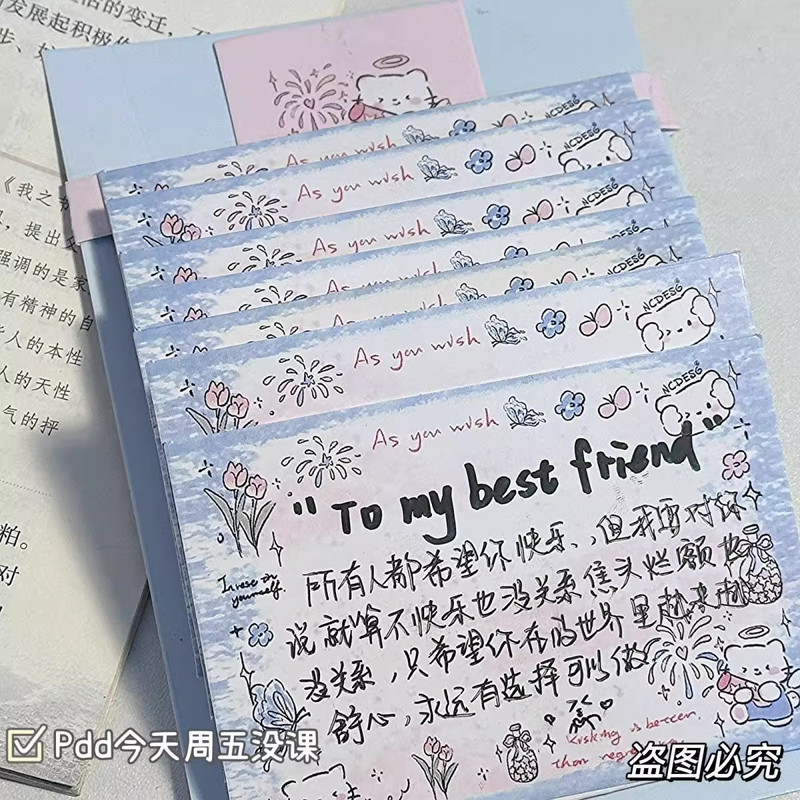 的变迁,
发展起积极作
步、好
《我之
提出
强调的是家
有精神的自
人的本性
人的天性
气的抨
粕。
对
As you wish
As you wish NCDESG
As you wish NCDESG
As you wish NCDESG
As you wish
As you wish NCDESG
As you wish NCDESG
"To my best friend"
所有人都希望你快乐、但我要对你
说就算不快乐也没关系焦头烂额也
没关系,只希望你在的世界里越来越
舒心,永远有选择可以做
Invest in yourself.
Risking is better than
Pdd今天周五没课
盗图必究